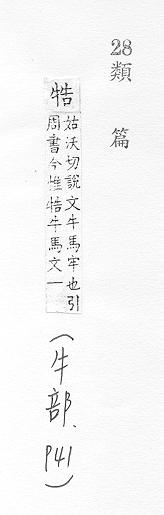 28類篇
牿
姑沃切說文牛馬牢也引
周書今惟牿牛馬文一
(牛部、P41)